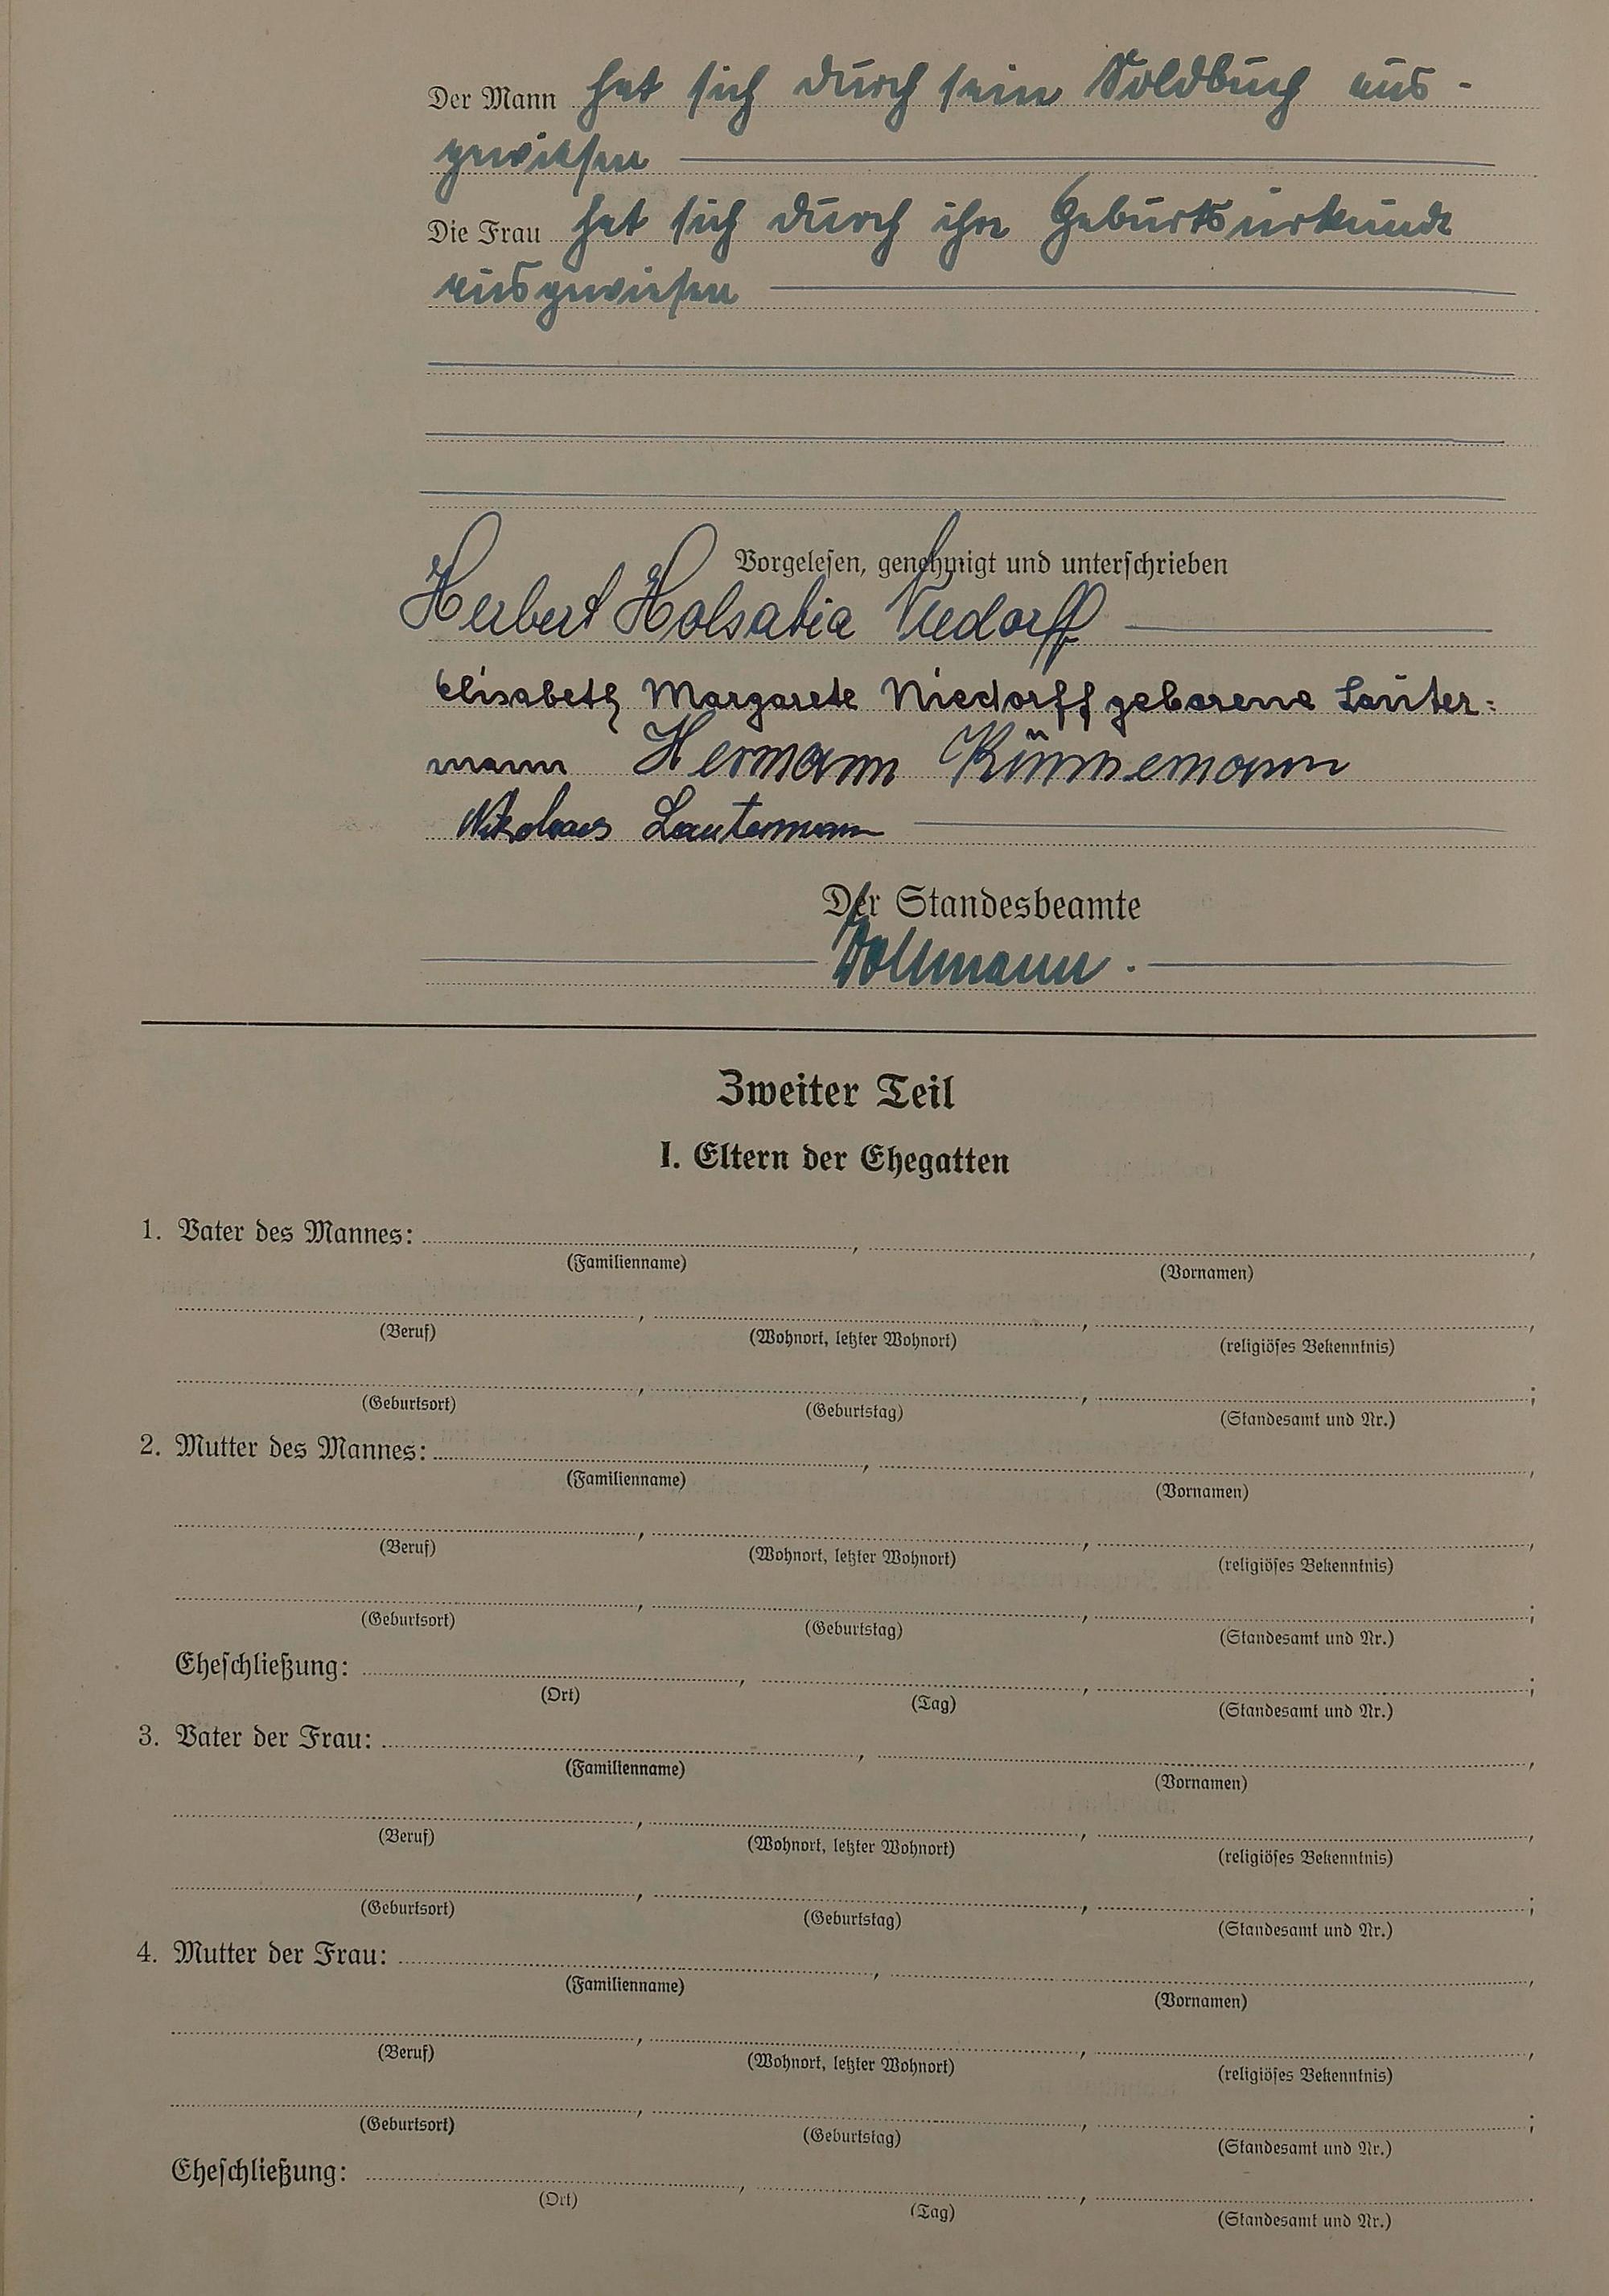 Der Mann hat sich durch sein Soldbuch aus-
gewiesen
Die Frau hat sich durch ihre Geburtsurkunde
ausgewiesen
Vorgelesen, genehmigt und unterschrieben
Herbert Holsatia Niedorff
Elisabeth Margarete Niedorff geborene Lauter=
mann Hermann Künnemann
Nikolaus Lautermann
Der Standesbeamte
Vollmann.
Zweiter Teil
I. Eltern der Ehegatten
1. Vater des Mannes: , ,
(Familienname) (Vornamen)
, , ,
(Beruf) (Wohnort, letzter Wohnort) (religiöses Bekenntnis)
, , ;
(Geburtsort) (Geburtstag) (Standesamt und Nr.)
2. Mutter des Mannes: , ,
(Familienname) (Vornamen)
, , ,
(Beruf) (Wohnort, letzter Wohnort) (religiöses Bekenntnis)
, , ;
(Geburtsort) (Geburtstag) (Standesamt und Nr.)
Eheschließung: , , ;
(Ort) (Tag) (Standesamt und Nr.)
3. Vater der Frau: , ,
(Familienname) (Vornamen)
, , ,
(Beruf) (Wohnort, letzter Wohnort) (religiöses Bekenntnis)
, , ;
(Geburtsort) (Geburtstag) (Standesamt und Nr.)
4. Mutter der Frau: , ,
(Familienname) (Vornamen)
, , ,
(Beruf) (Wohnort, letzter Wohnort) (religiöses Bekenntnis)
, , ;
(Geburtsort) (Geburtstag) (Standesamt und Nr.)
Eheschließung: , , .
(Ort) (Tag) (Standesamt und Nr.)